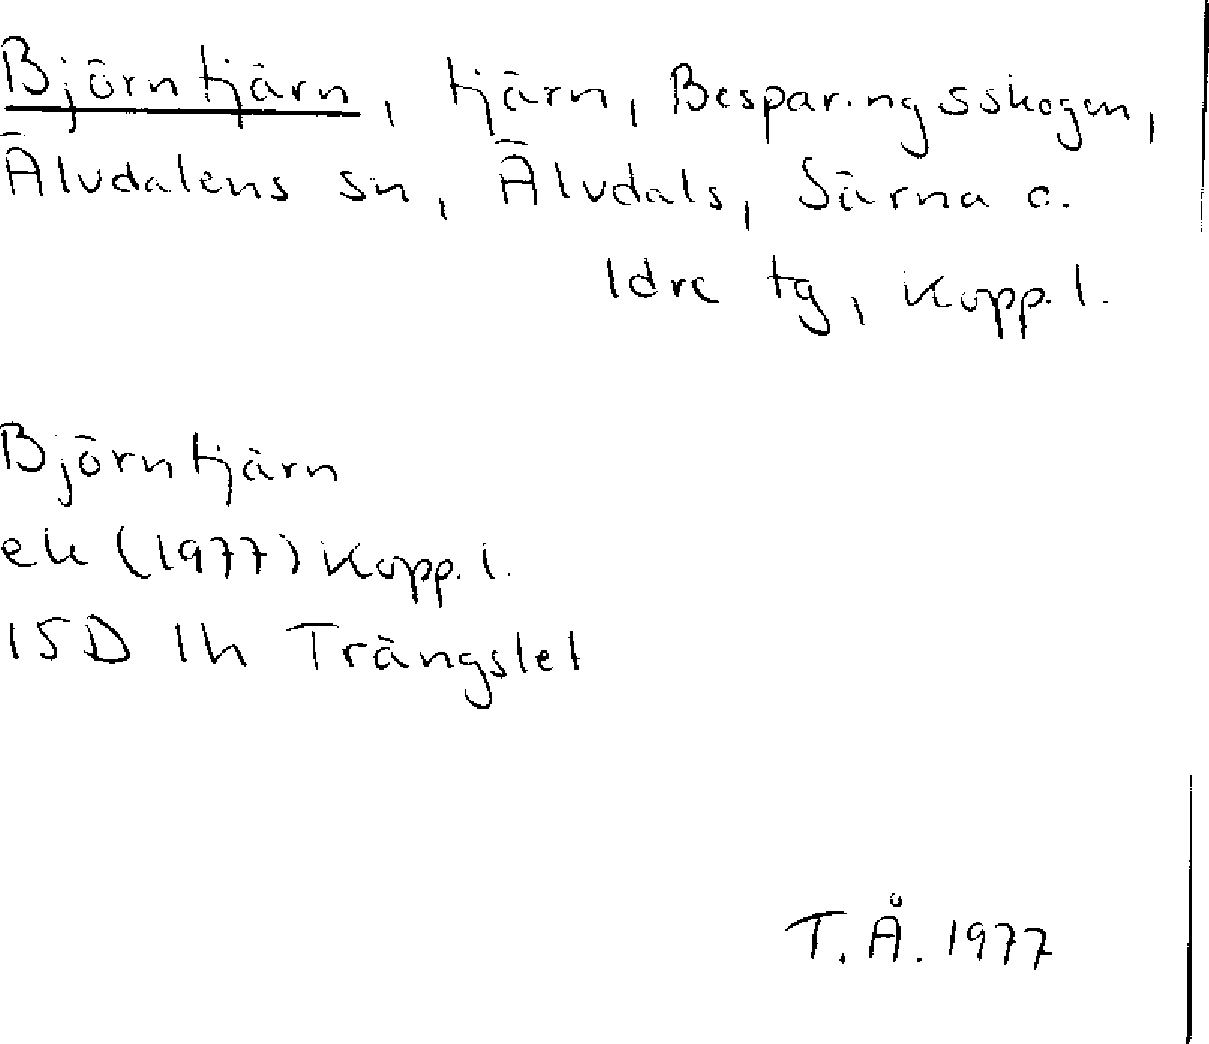 Björntjärn, tjärn, Besparingsskogen,
Älvdalens sn, Älvdals, Särna o.
Idre tg, Kopp. l.
Björntjärn
ek (1977) Kopp. l.
15D 1h Trängslet
T. Å. 1977